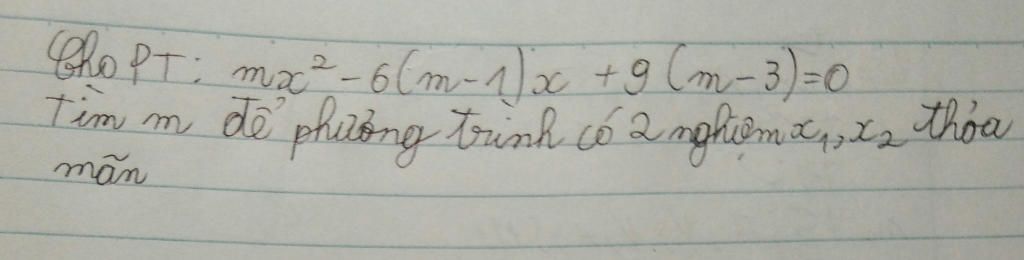 Cho PT: mx² - 6(m-1)x + 9(m-3)=0
Tìm m để phương trình có 2 nghiệm x₁, x₂ thỏa
mãn